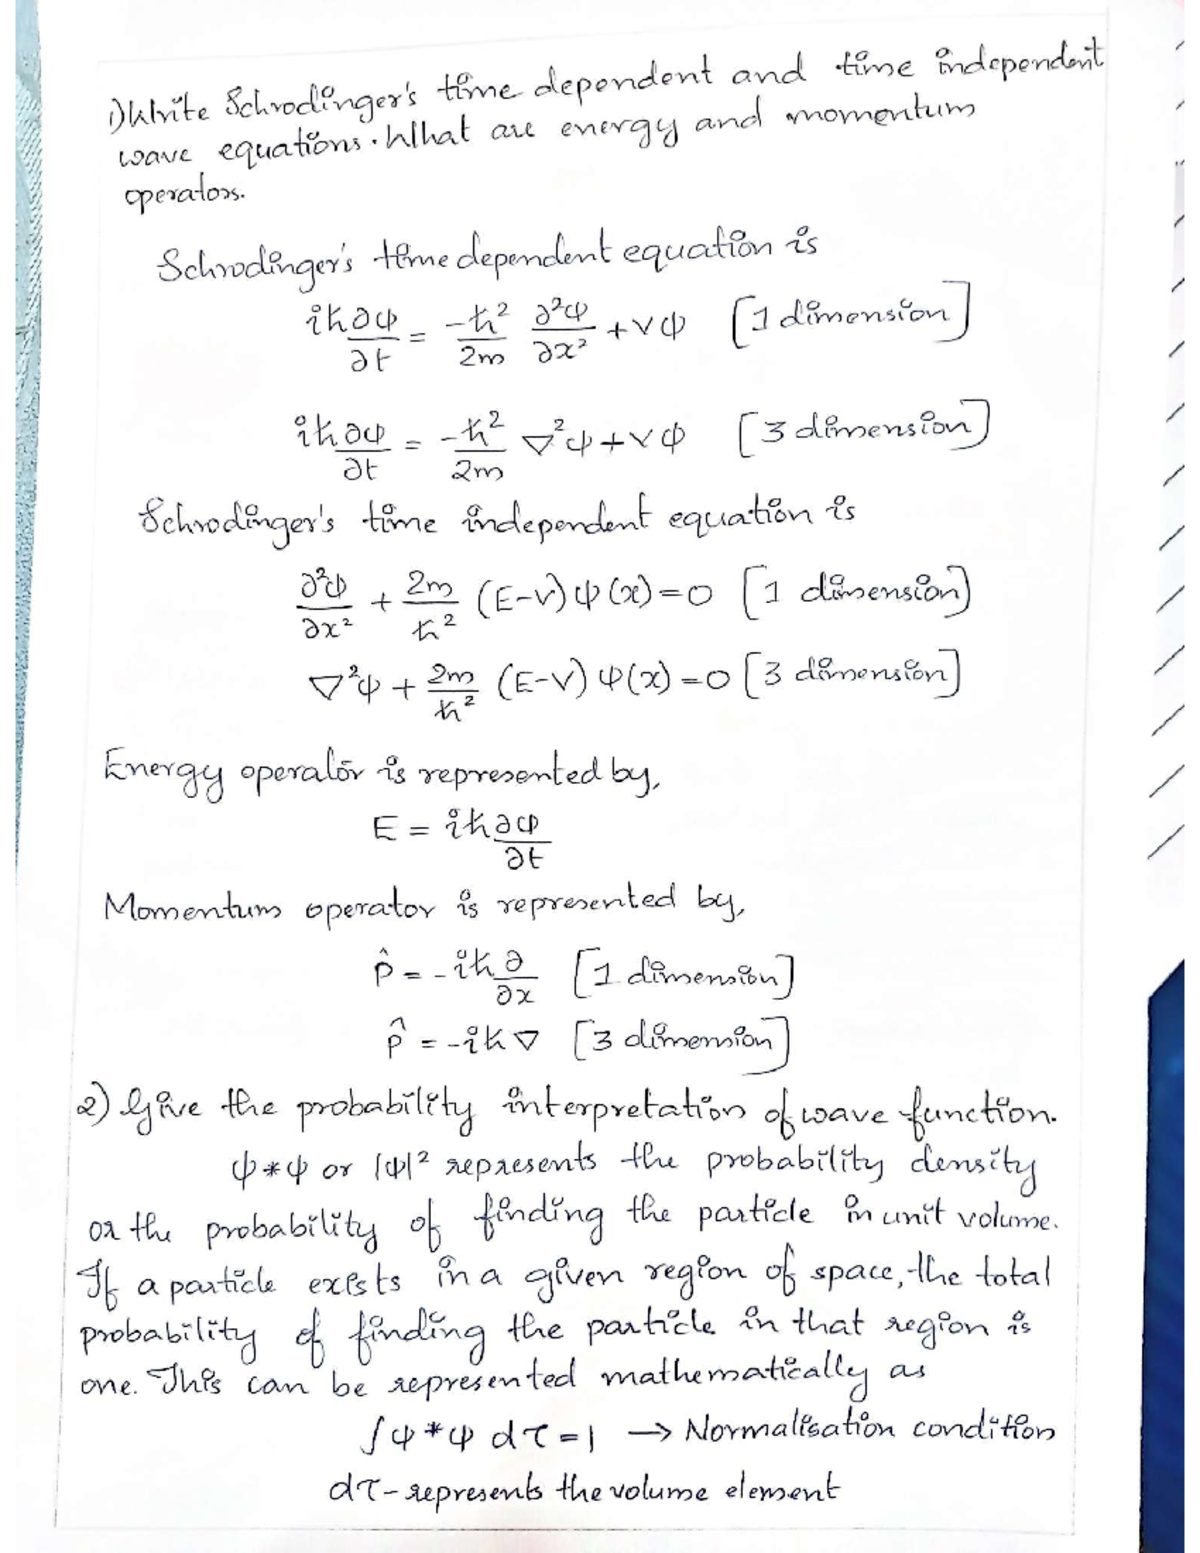 1) Write Schrodinger's time dependent and time independent
wave equations. What are energy and momentum
operators.
Schrodinger's time dependent equation is
iħ∂ψ/∂t = -ħ²/2m ∂²ψ/∂x² + Vψ [1 dimension]
iħ∂ψ/∂t = -ħ²/2m ∇²ψ + Vψ [3 dimension]
Schrodinger's time independent equation is
∂²ψ/∂x² + 2m/ħ² (E-V) ψ(x) = 0 [1 dimension]
∇²ψ + 2m/ħ² (E-V) ψ(x) = 0 [3 dimension]
Energy operator is represented by,
E = iħ∂ψ/∂t
Momentum operator is represented by,
p̂ = -iħ∂/∂x [1 dimension]
p̂ = -iħ∇ [3 dimension]
2) Give the probability interpretation of wave function.
ψ*ψ or |ψ|² represents the probability density
or the probability of finding the particle in unit volume.
If a particle exists in a given region of space, the total
probability of finding the particle in that region is
one. This can be represented mathematically as
∫ψ*ψ dτ = 1 → Normalisation condition
dτ - represents the volume element